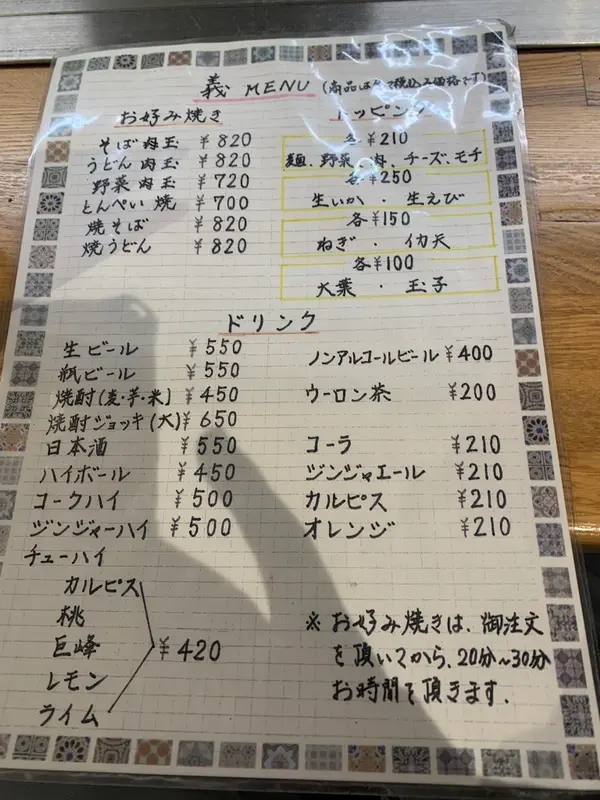 義 MENU (商品は全て税込み価格です)
お好み焼き
そば肉玉 ¥820
うどん肉玉 ¥820
野菜肉玉 ¥720
とんぺい焼 ¥700
焼そば ¥820
焼うどん ¥820
トッピング
各¥210
麺、野菜、肉、チーズ、モチ
各¥250
生いか・生えび
各¥150
ねぎ・イカ天
各¥100
大葉・玉子
ドリンク
生ビール ¥550
瓶ビール ¥550
焼酎(麦・芋・米) ¥450
焼酎ジョッキ(大)¥650
日本酒 ¥550
ハイボール ¥450
コークハイ ¥500
ジンジャーハイ ¥500
チューハイ
カルピス
桃
巨峰 ¥420
レモン
ライム
ノンアルコールビール ¥400
ウーロン茶 ¥200
コーラ ¥210
ジンジャエール ¥210
カルピス ¥210
オレンジ ¥210
※お好み焼きは、御注文
を頂いてから、20分〜30分
お時間を頂きます.